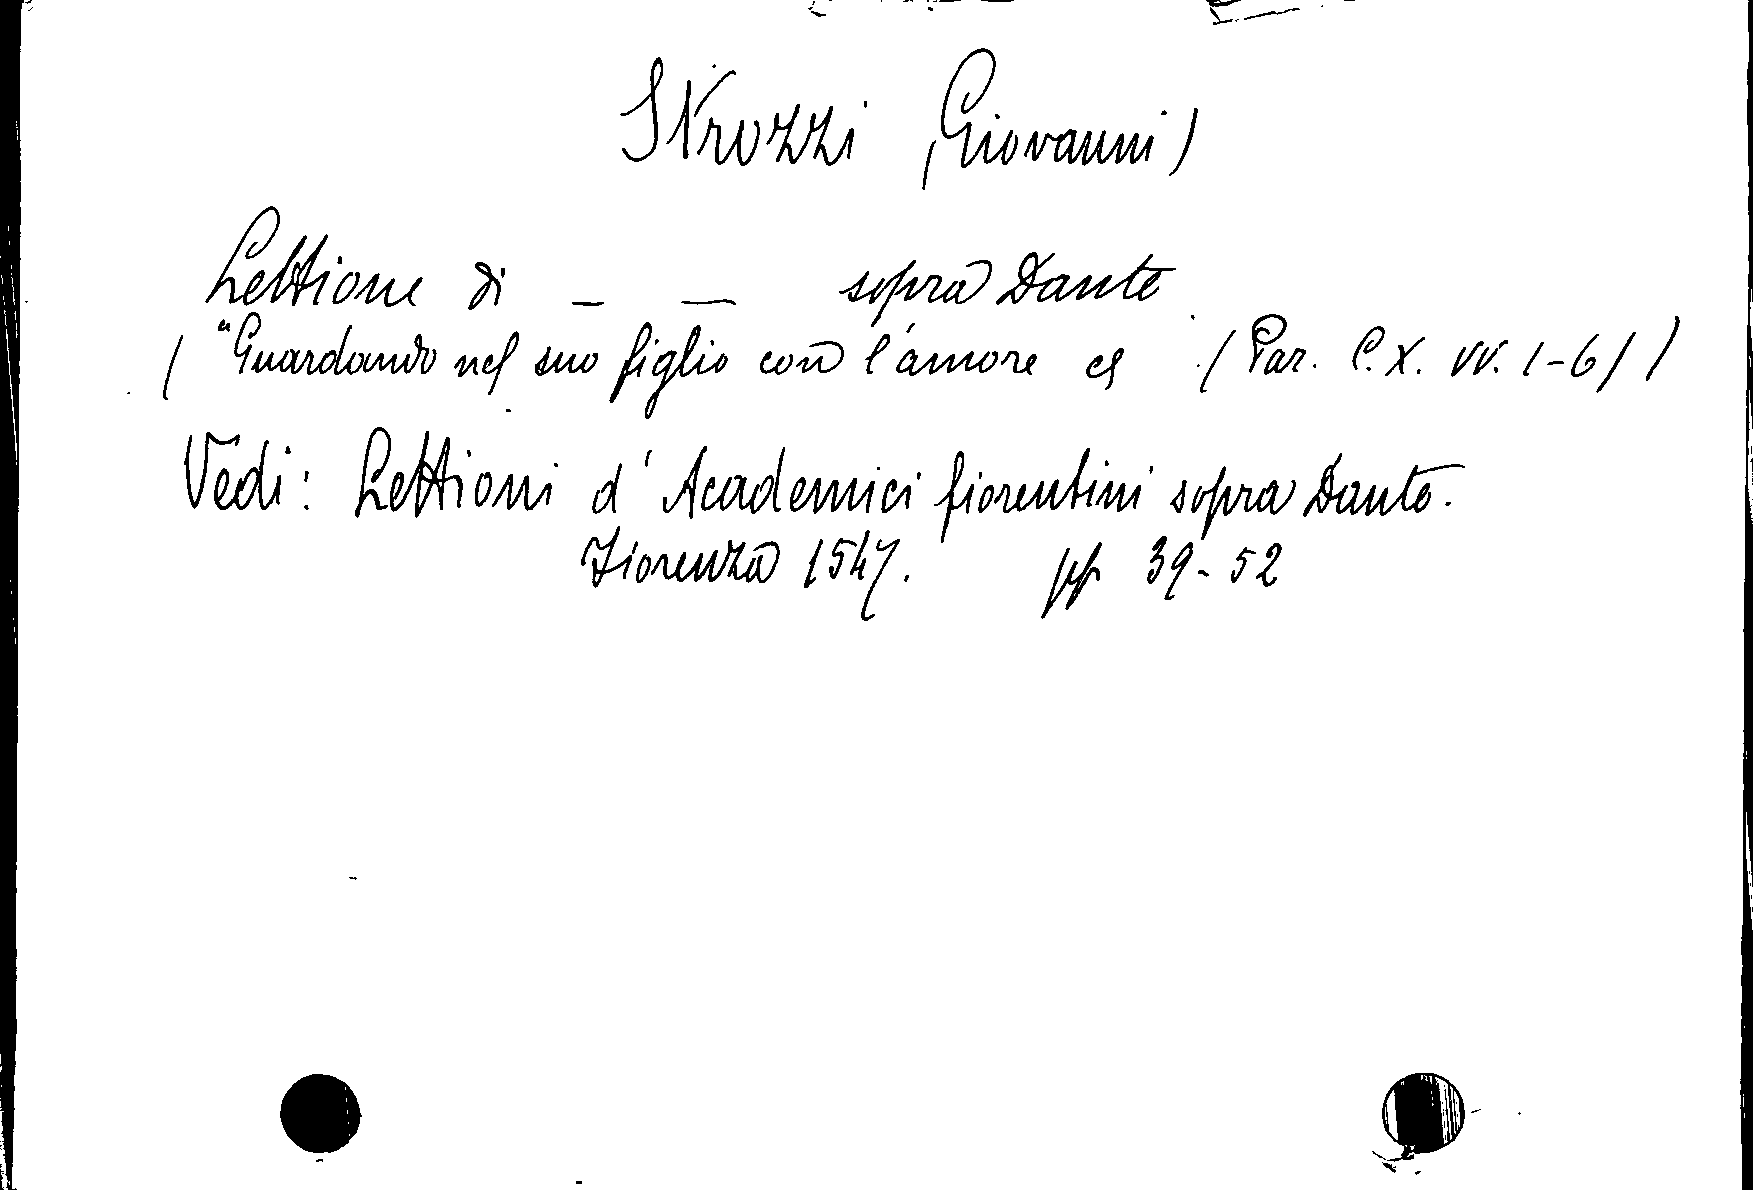 Strozzi (Giovanni)
Lettione di — — sopra Dante
( "Guardando nel suo figlio con l'amore (Par. C. X. vv. 1-6) )
Vedi: Lettioni d'Academici fiorentini sopra Dante.
Fiorenza 1547. pp 39-52